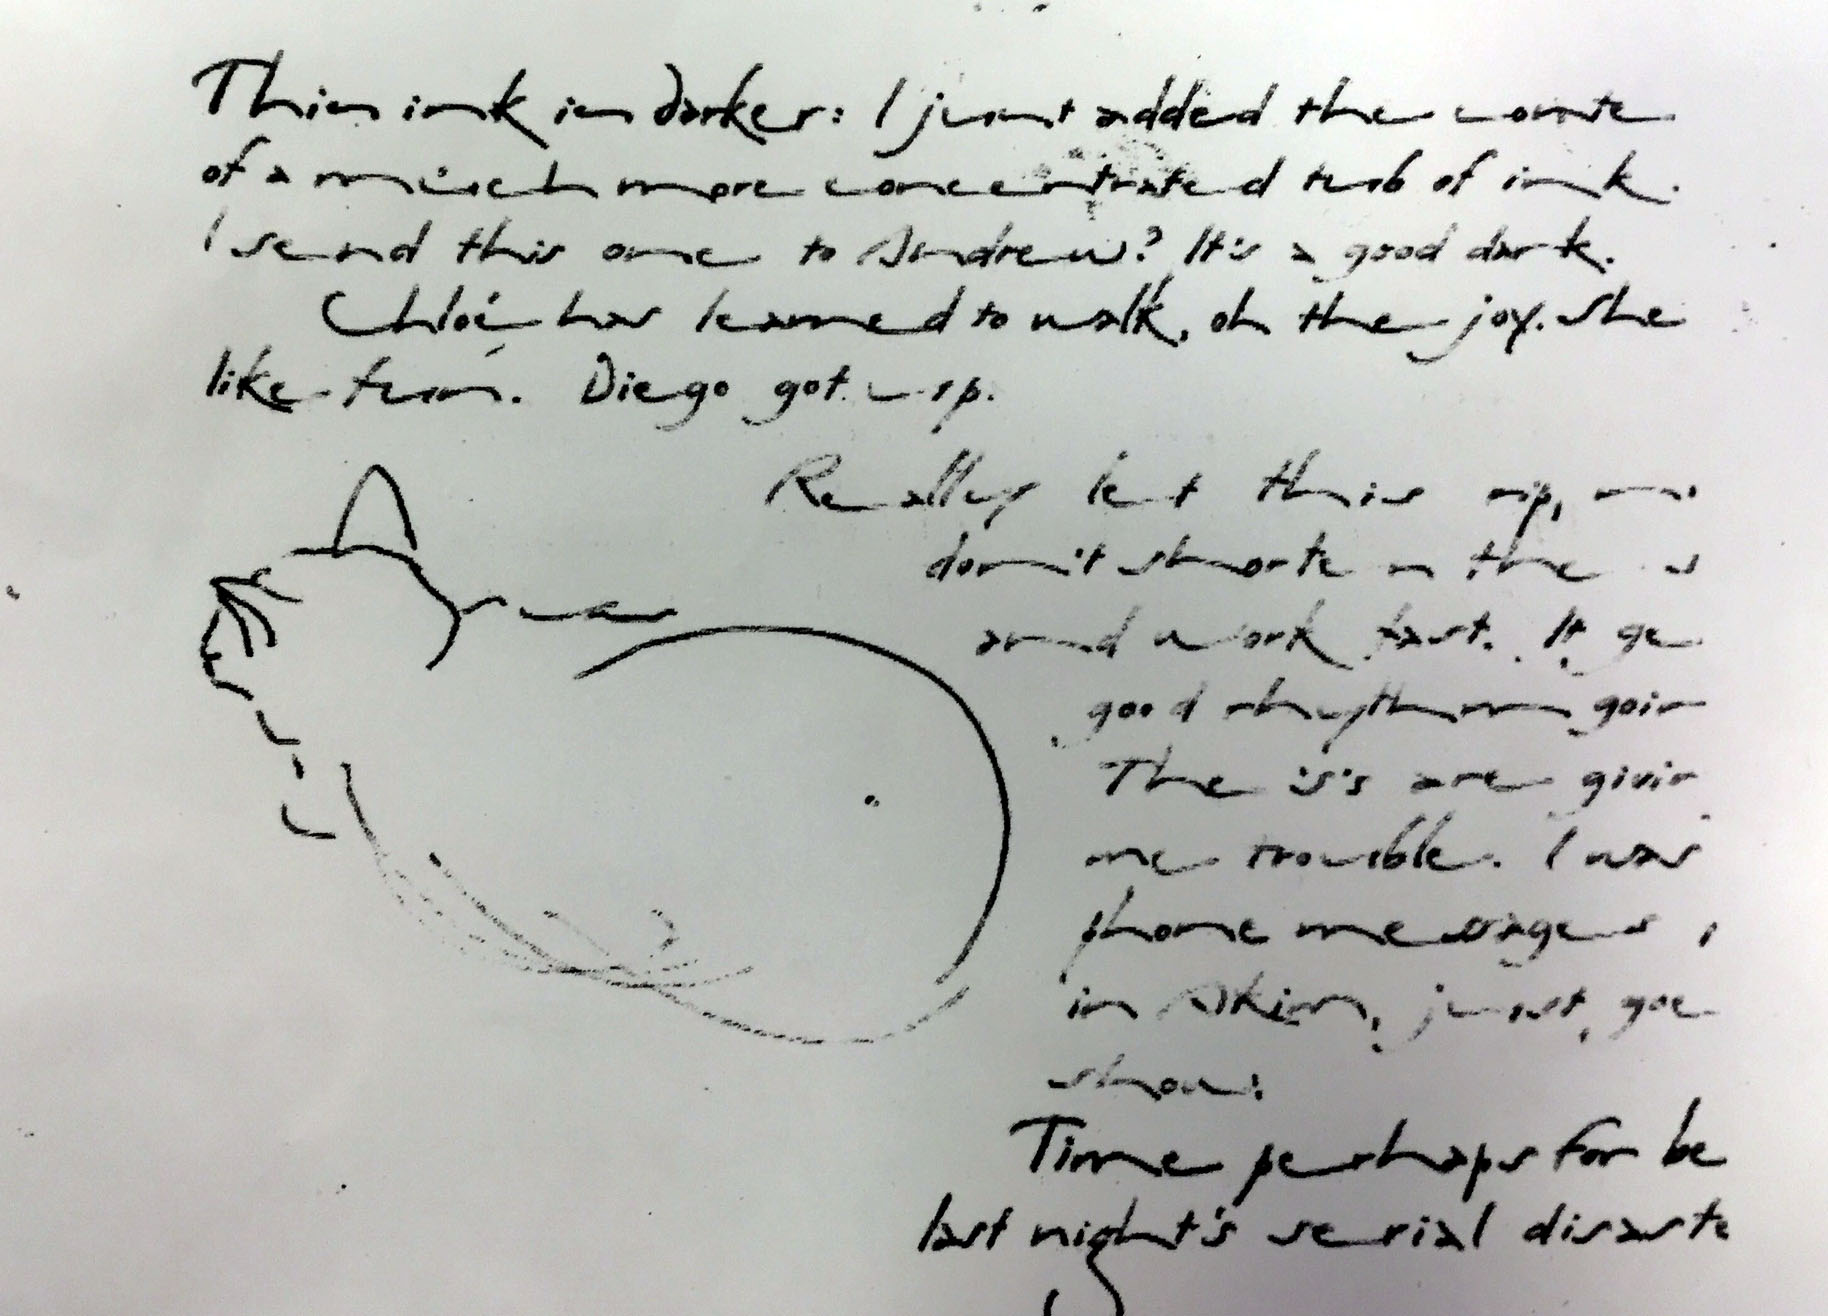 This ink is darker: I just added the
of a much more concentrated tub of ink.
I send this one to Andrew? It's a good dark.
Chloé has learned to walk, oh the joy. She
like fun. Diego got up.
Really let this rip,
don't shorten the
and work fast. It ge
good rhythm goin
The is's are givin
me trouble. I was
phone messages,
in Akim, just, goe
show.
Time perhaps for be
last night's serial disaste